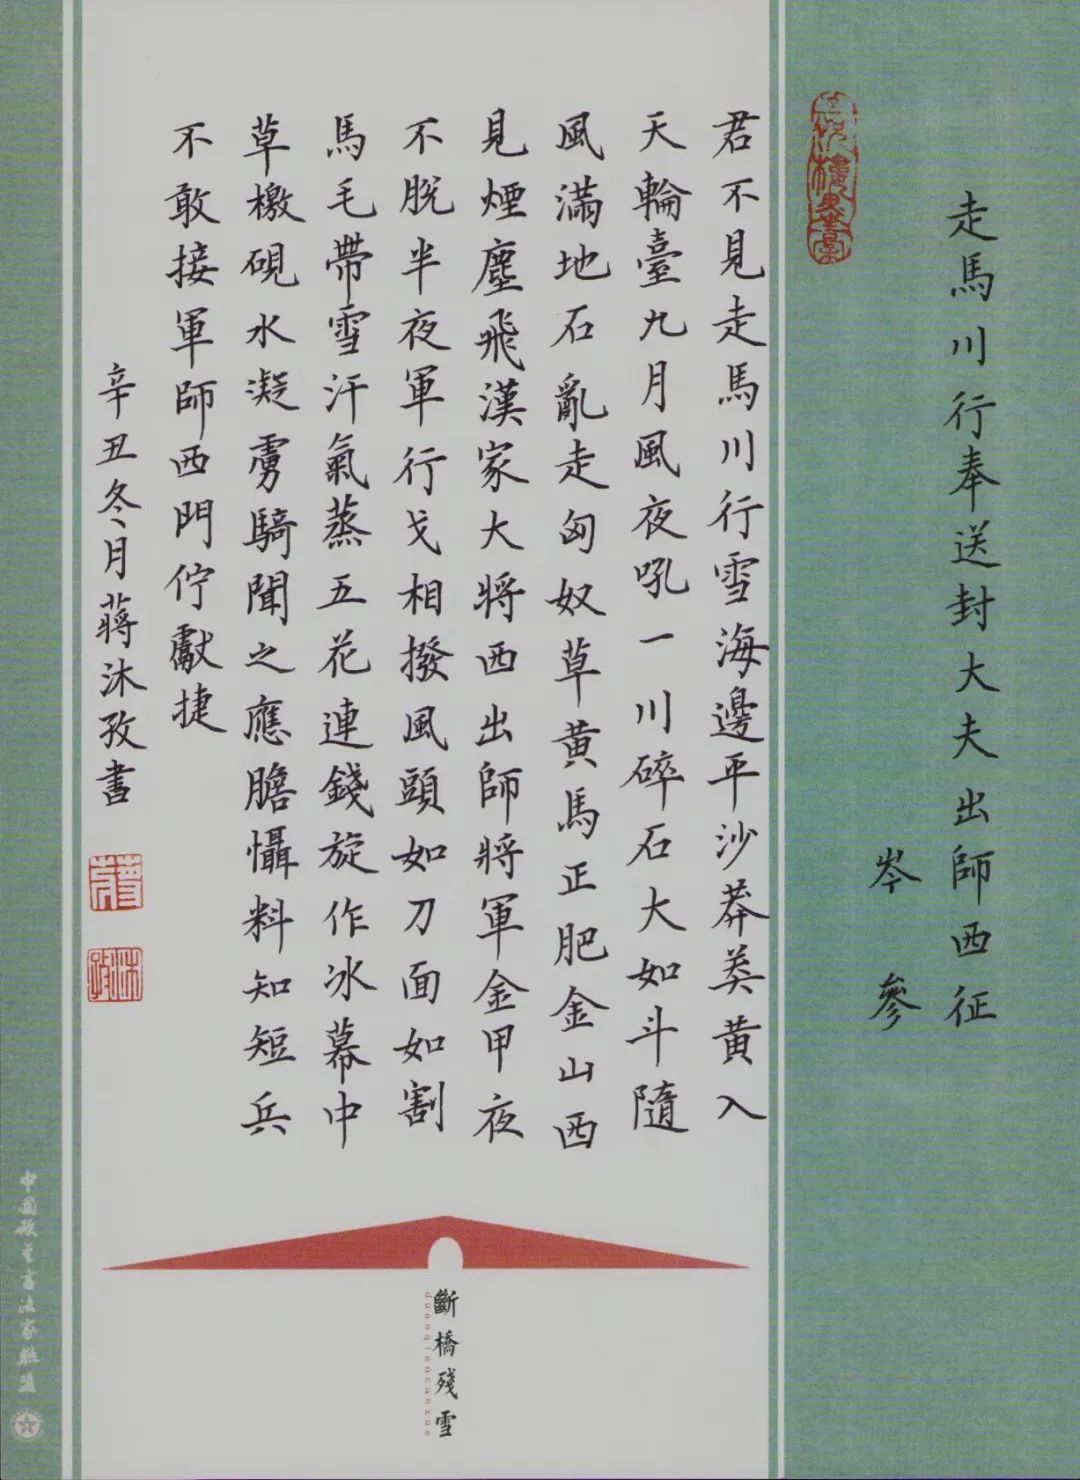 走馬川行奉送封大夫出師西征
岑參
君不見走馬川行雪海邊平沙莽莽黃入
天輪臺九月風夜吼一川碎石大如斗隨
風滿地石亂走匈奴草黃馬正肥金山西
見煙塵飛漢家大將西出師將軍金甲夜
不脫半夜軍行戈相撥風頭如刀面如割
馬毛帶雪汗氣蒸五花連錢旋作冰幕中
草檄硯水凝虜騎聞之應膽懾料知短兵
不敢接軍師西門佇獻捷
辛丑冬月蔣沐孜書
沐孜
斷橋殘雪
duanqiaocanxue
中國硬筆書法家聯盟